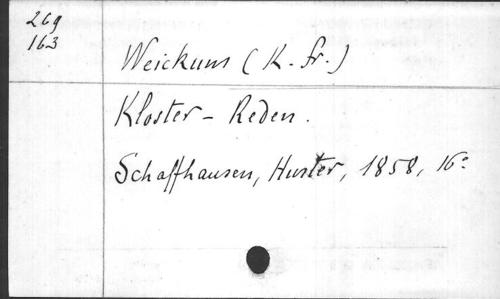 269
163
Weickum (K. fr.)
Kloster - Reden.
Schaffhausen, Hurter, 1858, 16°